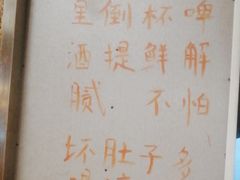 里倒杯啤
酒提鲜解
腻 不怕
坏肚子多